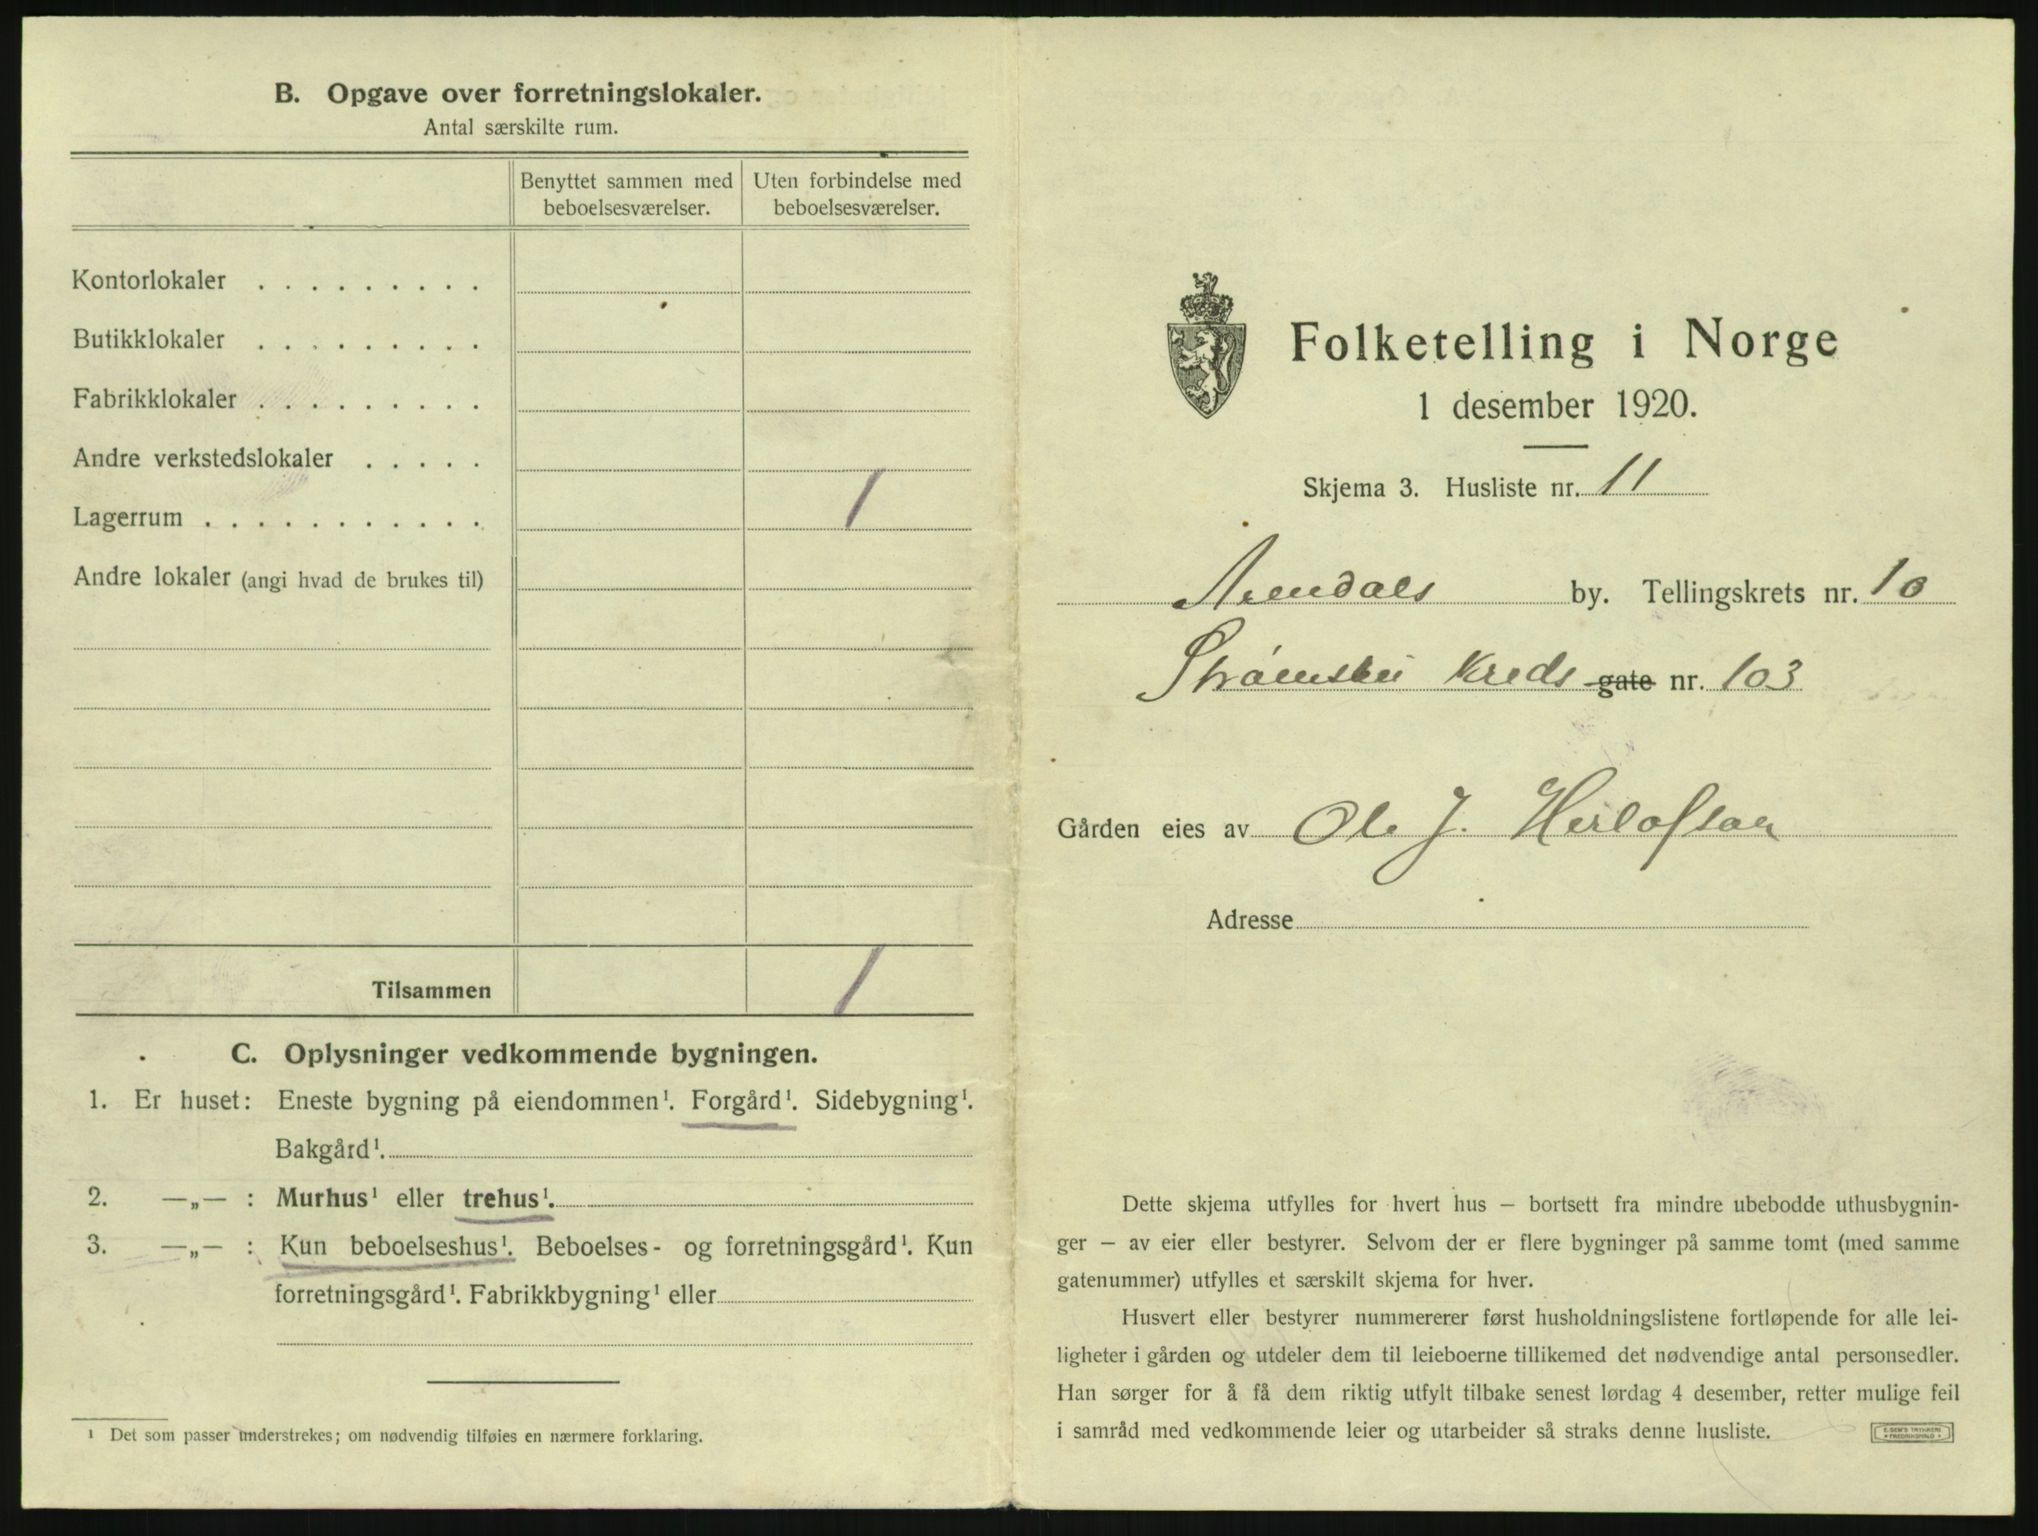 B. Opgave over forretningslokaler.
Antal særskilte rum.
Benyttet sammen med beboelsesværelser.
Uten forbindelse med beboelsesværelser.
Kontorlokaler . . . . . . . . .
Butikklokaler . . . . . . . . .
Fabrikklokaler . . . . . . . . .
Andre verkstedslokaler . . . . .
Lagerrum . . . . . . . . . . . 1
Andre lokaler (angi hvad de brukes til)
Tilsammen 1
C. Oplysninger vedkommende bygningen.
1. Er huset: Eneste bygning på eiendommen¹. Forgård¹. Sidebygning¹.
Bakgård¹.
2. —„— : Murhus¹ eller trehus¹.
3. —„— : Kun beboelseshus¹. Beboelses- og forretningsgård¹. Kun
forretningsgård¹. Fabrikkbygning¹ eller
¹ Det som passer understrekes; om nødvendig tilføies en nærmere forklaring.
Folketelling i Norge
1 desember 1920.
Skjema 3. Husliste nr. 11
Arendals by. Tellingskrets nr. 10
Strømsbu Kreds gate nr. 103
Gården eies av Ole J. Herlofson
Adresse
Dette skjema utfylles for hvert hus – bortsett fra mindre ubebodde uthusbygnin-
ger – av eier eller bestyrer. Selvom der er flere bygninger på samme tomt (med samme
gatenummer) utfylles et særskilt skjema for hver.
Husvert eller bestyrer nummererer først husholdningslistene fortløpende for alle lei-
ligheter i gården og utdeler dem til leieboerne tillikemed det nødvendige antal personsedler.
Han sørger for å få dem riktig utfylt tilbake senest lørdag 4 desember, retter mulige feil
i samråd med vedkommende leier og utarbeider så straks denne husliste.